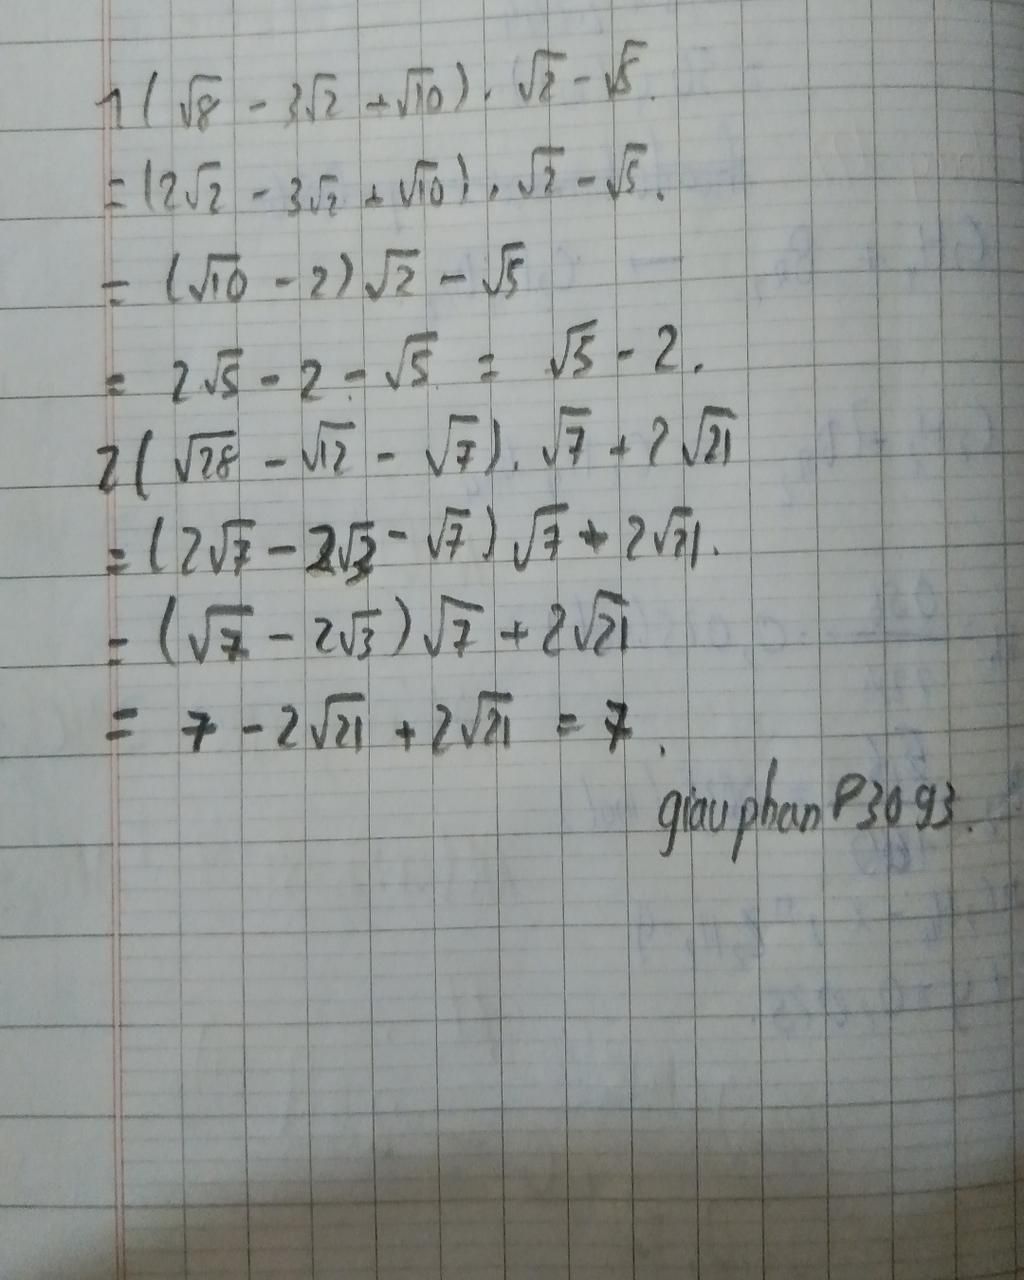 1 ( √8 - 3√2 + √10 ) . √2 - √5.
= (2√2 - 3√2 + √10) . √2 - √5.
= (√10 - 2) √2 - √5
= 2√5 - 2 - √5 = √5 - 2.
2 ( √28 - √12 - √7 ) . √7 + 2√21
= (2√7 - 2√3 - √7) √7 + 2√21.
= (√7 - 2√3) √7 + 2√21
= 7 - 2√21 + 2√21 = 7.
giauphan P3093.